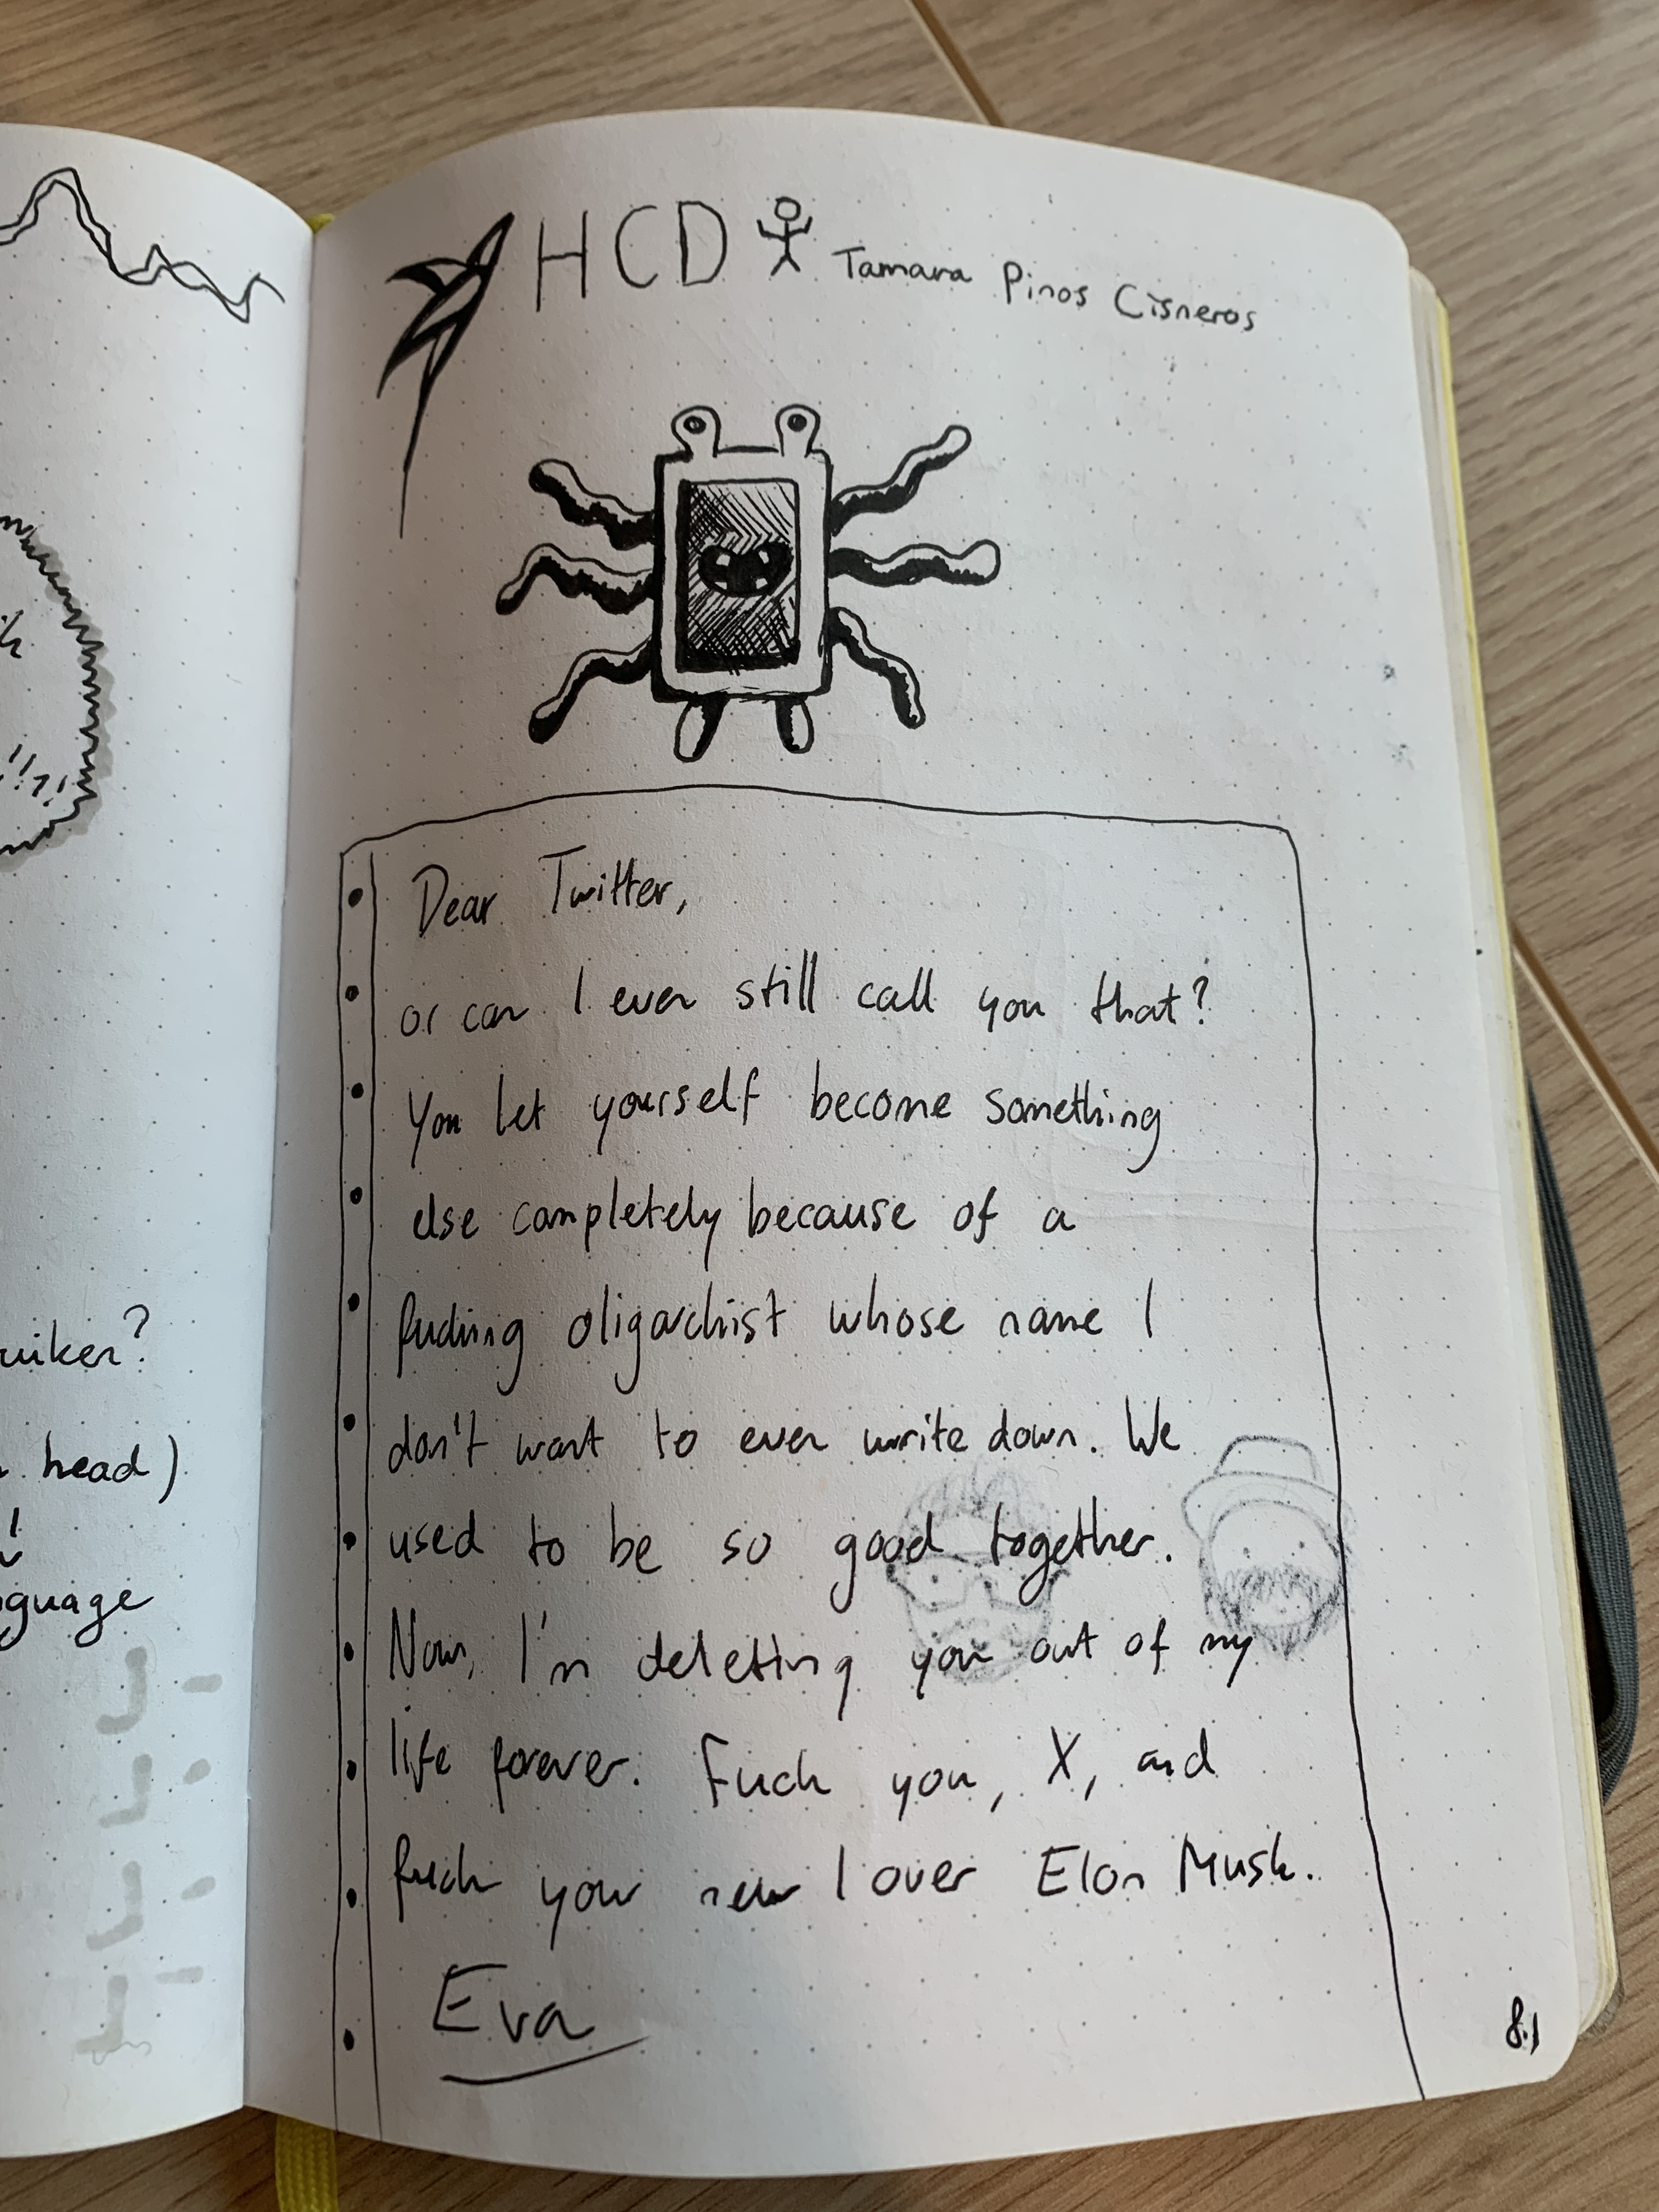 uiker?
head)
guage
HCD Tamara Pinos Cisneros
Dear Twitter,
or can I even still call you that?
You let yourself become something
else completely because of a
fucking oligarchist whose name I
don't want to even write down. We
used to be so good together.
Now, I'm deleting you out of my
life forever. Fuck you, X, and
fuck your new lover Elon Musk.
Eva
81